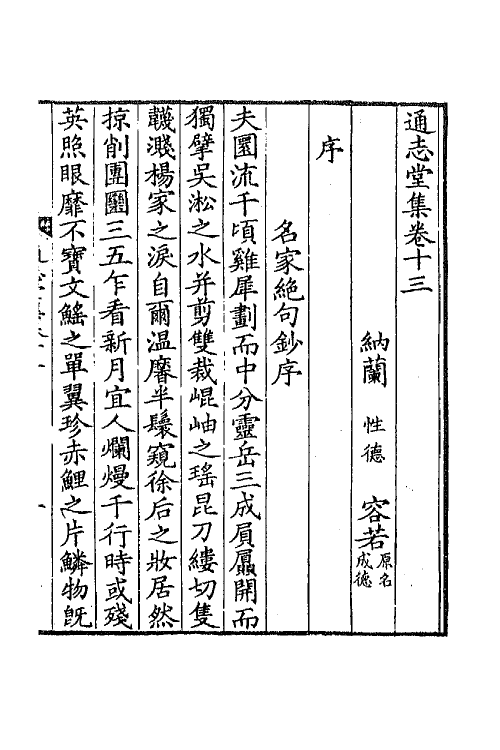 通志堂集卷十三
納蘭 性德 容若原名成德
序
名家絶句鈔序
夫圜流千頃雞犀劃而中分靈岳三成屓屭開而
獨擘吳淞之水并剪雙裁崐岫之瑶昆刀縷切隻
韈濺楊家之淚自爾温麐半鬟窺徐后之妝居然
掠削團圞三五乍看新月宜人爛熳千行時或殘
英照眼靡不寶文鰩之單翼珍赤鯉之片鱗物旣